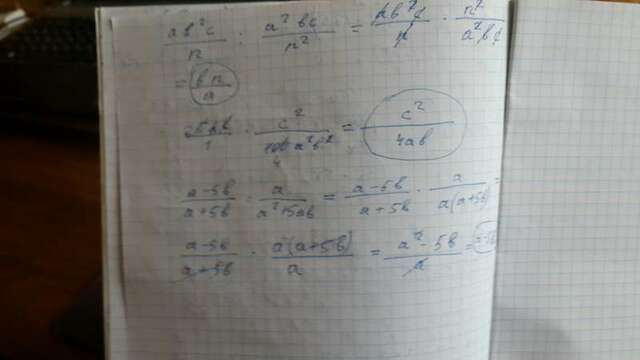 ab²c/n : a²bc/n² = ab²c/n · n²/a²bc
= bn/a
25ab/1 · c²/100a²b² = c²/4ab
a-5b/a+5b : a/a²+5ab = a-5b/a+5b : a/a(a+5b) =
a-5b/a+5b · a(a+5b)/a = a²-5b/a =